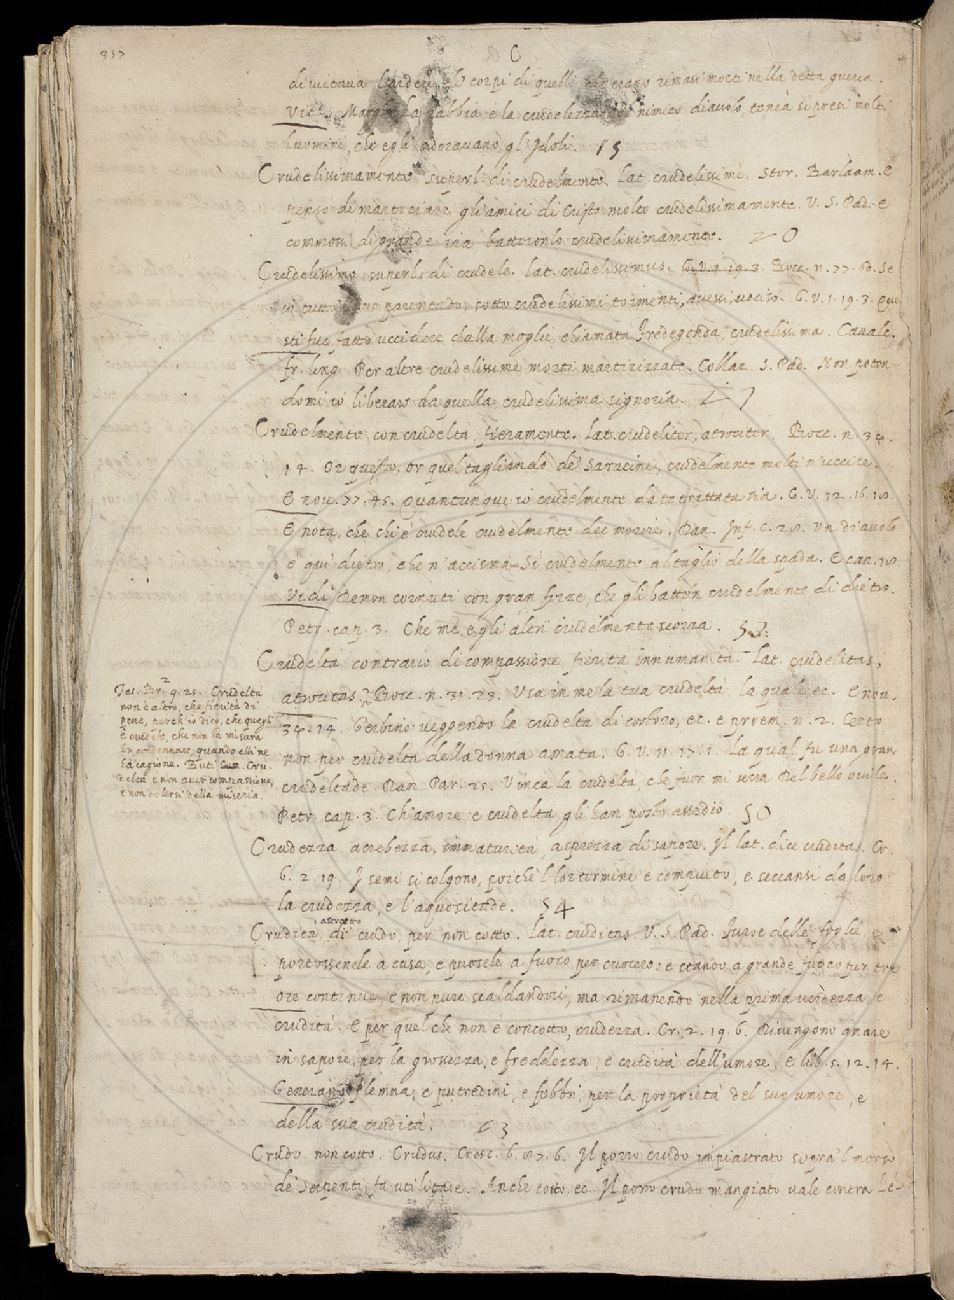 357
C
divietava l'ardere de' corpi di quelli che erano rimasi morti nella detta guerra.
Vit. S. Marg. La rabbia e la crudelezza nimico diavolo, tenea si presi molti
huomini, che egli adoravano gl'Idoli. 15
Crudelissimamente superl. di crudelmente. Lat. crudelissime. Stor. Barlaam. E
penso di martoriare gli amici di Cristo molto crudelissimamente. V. S. Pad. E
commossi di grande ira battironlo crudelissimamente. 20
Crudelissimo superl. di crudele. Lat. crudelissimus. G.V. 1. 19. 3. Bocc. n. 77. 60. Se
io tutto tuo parentado sotto crudelissimi tormenti avessi ucciso. G. V. 1. 19. 3. Que
sti fue fatto uccidere dalla moglie chiamata Fredegonda, crudelissima. Cavalc.
fr. ling. Per altre crudelissime morti martirizzate. Collaz. S. Pad. Non poten-
domi io liberare da quella crudelissima signoria. 27
Crudelmente con crudeltà, fieramente. Lat. crudeliter, atrociter. Bocc. n. 34.
14. Or questo, or quel tagliando de' Saracini, crudelmente molti n'uccise.
E nov. 77. 45. quantunque io crudelmente da te trattata sia. G. V. 12. 16. 18.
E nota, che chi è crudele crudelmente dee morire. Dan. Inf. c. 28. Un diavolo
è qui dietro, che n'accisma Sì crudelmente al taglio della spada. E can. 18.
Vidi Demon cornuti con gran ferze, che gli battén crudelmente di dietro.
Petr. cap. 3. Che me, e gli altri crudelmente scorza. 32.
Crudeltà contrario di compassione, fierità innumanità. Lat. crudelitas,
atrocitas. Bocc. n. 31. 23. Usa in me la tua crudeltà, la qual ec. E nov.
34. 14. Gerbino veggendo la crudeltà di costoro, ec. e proem. n. 2. Certo
non per crudeltà della donna amata. G. V. 11. 17. 1. La qual fu una gran
crudeltade. Dan. Par. 25. Vinca la crudeltà, che fuor mi serra Del bello ovile.
Petr. cap. 3. Ch'amore, e crudeltà gli han posto assedio. 50
Tes. Br. 2 9. 25. Crudeltà
non è altro, che fierità di
pene, perch'io dico, che quegli
è crudele, che non ha misura
in condennare, quando elli ne
ha cagione. Buti Cru-
deltà è non aver compassione,
e non dolersi della miseria.
Crudezza acerbezza, immaturità, asprezza di sapore. Il lat. dice cruditas. Cr.
6. 2. 19. I semi si colgono, poiché 'l lor termine è compiuto, e seccansi da loro
la crudezza, e l'aquositade. 54
Crudità astratto di crudo per non cotto. Lat. cruditas. V. S. Pad. Tolse delle foglie e
portossenele a casa, e puosele a fuoco per cuocere: e stando a grande fuoco per tre
ore continue, e non pure scaldandosi, ma rimanendo nella prima verdezza, e
crudità. E per quel che non è concotto, crudezza. Cr. 2. 19. 6. Divengono amare
in sapore, per la grossezza, e freddezza, e crudità dell'umore, e lib. 5. 12. 14.
Generano flemma, e putredini, e febbri, per la proprietà del suo umore, e
della sua crudità. 63
Crudo non cotto. Crudus. Cresc. 6. 87. 6. Il porro crudo impiastrato sopra 'l morso
de' serpenti, fa utilitade. Anche cotto, ec. Il porro crudo mangiato vale contra l'e-